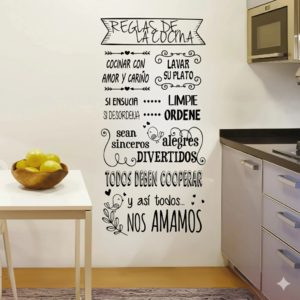 REGLAS DE
LA COCINA
COCINAR CON
AMOR Y CARIÑO
LAVAR
SU PLATO
SI ENSUCIA ..... LIMPIE
SI DESORDENA ..... ORDENE
sean
sinceros
alegres
DIVERTIDOS
TODOS DEBEN COOPERAR
y así todos...
NOS AMAMOS